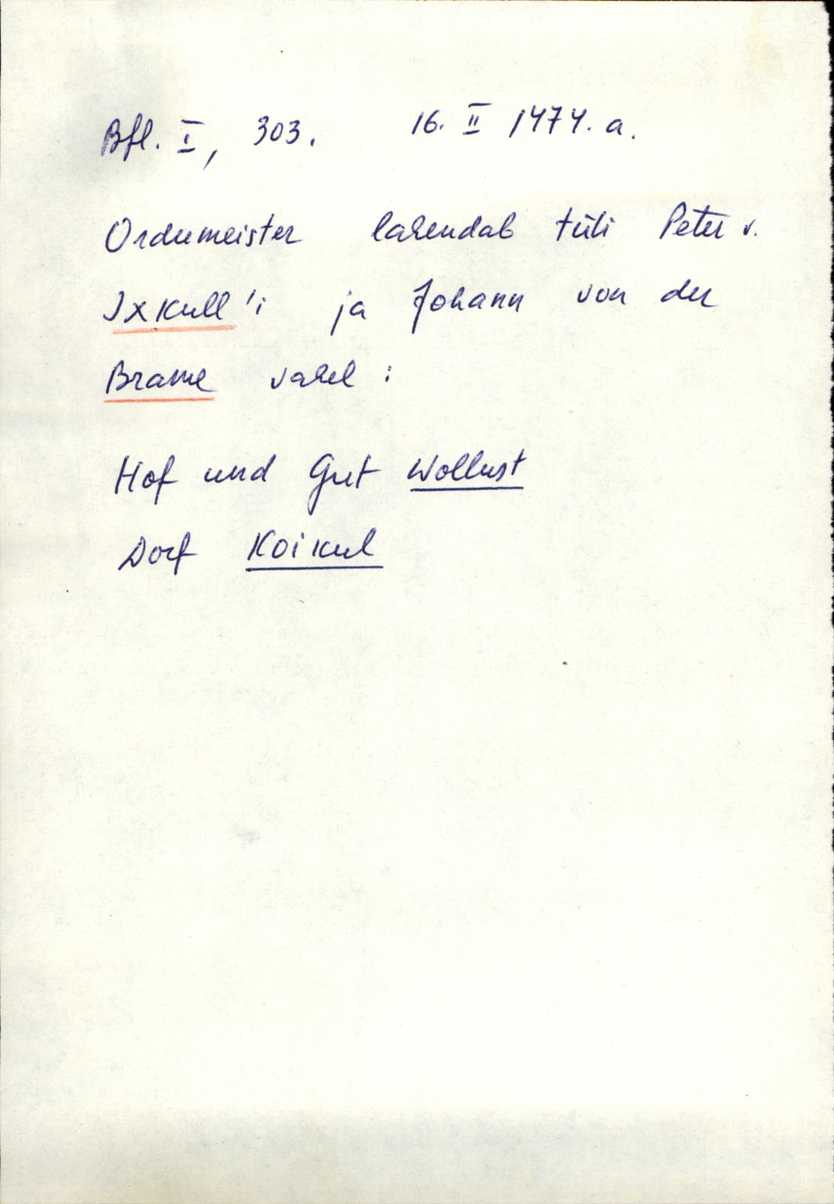 Bfl. I, 303. 16. II 1474. a.
Ordumeister lahendab tüli Peter v.
Ixkull'i ja Johann von der
Brame vahel:
Hof und Gut Wollust
Dorf Koikul